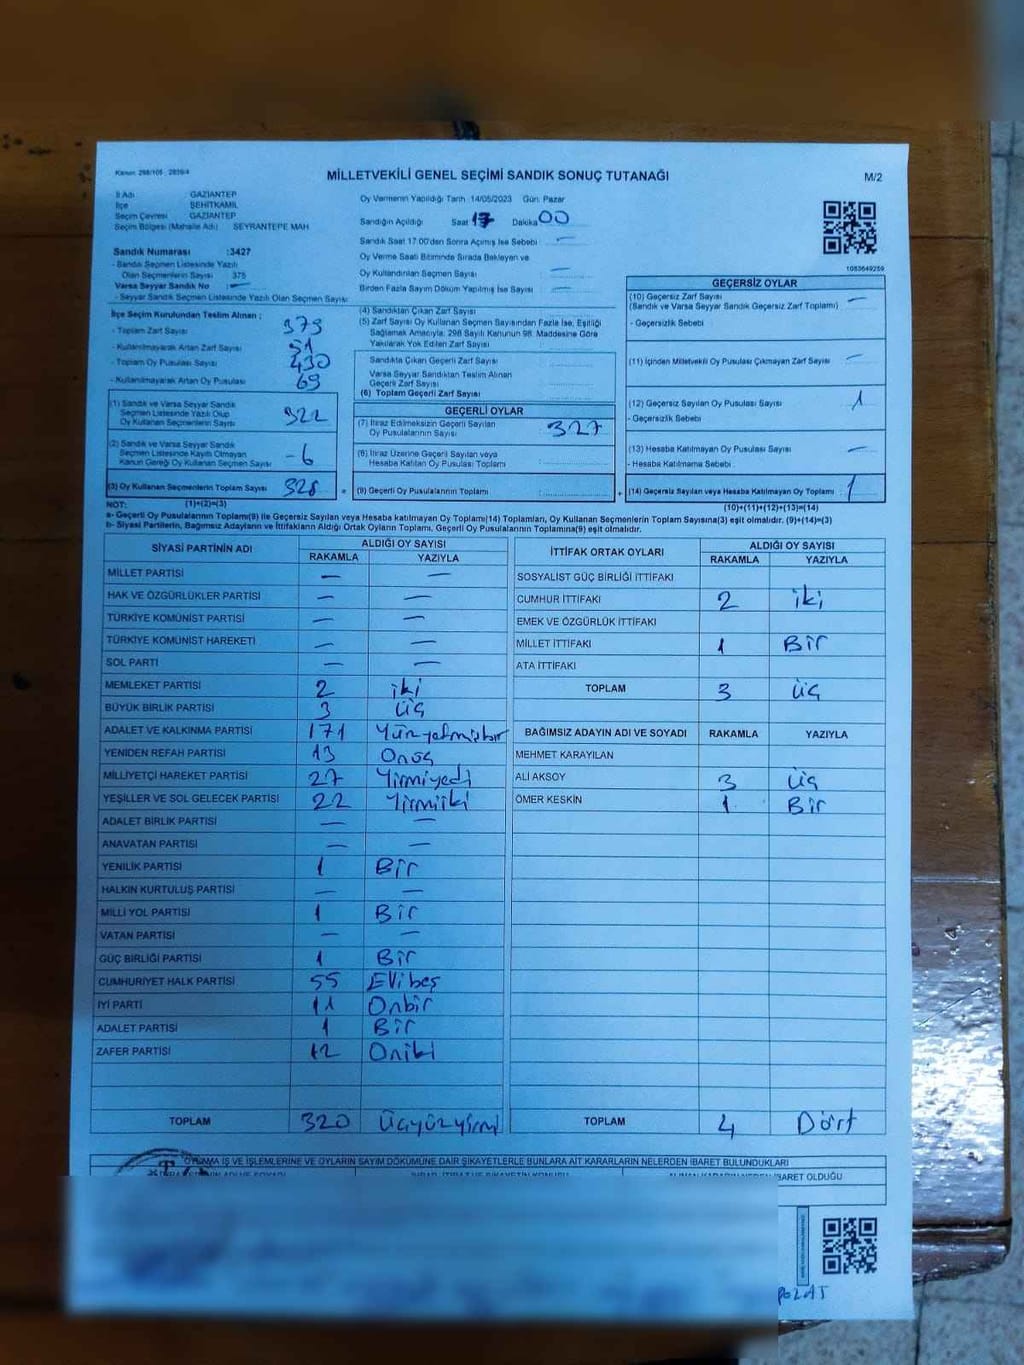 Kanun: 298/105 2839/4
MİLLETVEKİLİ GENEL SEÇİMİ SANDIK SONUÇ TUTANAĞI
M/2
İl Adı GAZİANTEP
İlçe ŞEHİTKAMİL
Seçim Çevresi GAZİANTEP
Seçim Bölgesi (Mahalle Adı) SEYRANTEPE MAH
Sandık Numarası :3427
- Sandık Seçmen Listesinde Yazılı
Olan Seçmenlerin Sayısı : 375
Varsa Seyyar Sandık No : —
- Seyyar Sandık Seçmen Listesinde Yazılı Olan Seçmen Sayısı:
Oy Vermenin Yapıldığı Tarih 14/05/2023 Gün: Pazar
Sandığın Açıldığı Saat 17 Dakika 00
Sandık Saat 17:00'dan Sonra Açılmış İse Sebebi : —
Oy Verme Saati Bitiminde Sırada Bekleyen ve
Oy Kullandırılan Seçmen Sayısı : —
Birden Fazla Sayım Döküm Yapılmış İse Sayısı : —
1083649259
İlçe Seçim Kurulundan Teslim Alınan ;
- Toplam Zarf Sayısı : 379
- Kullanılmayarak Artan Zarf Sayısı : 51
- Toplam Oy Pusulası Sayısı : 430
- Kullanılmayarak Artan Oy Pusulası : 69
(1) Sandık ve Varsa Seyyar Sandık
Seçmen Listesinde Yazılı Olup
Oy Kullanan Seçmenlerin Sayısı 322
(2) Sandık ve Varsa Seyyar Sandık
Seçmen Listesinde Kayıtlı Olmayan
Kanun Gereği Oy Kullanan Seçmen Sayısı - 6
(3) Oy Kullanan Seçmenlerin Toplam Sayısı 328
(4) Sandıktan Çıkan Zarf Sayısı :
(5) Zarf Sayısı Oy Kullanan Seçmen Sayısından Fazla İse, Eşitliği
Sağlamak Amacıyla, 298 Sayılı Kanunun 98. Maddesine Göre
Yakılarak Yok Edilen Zarf Sayısı :
Sandıkta Çıkan Geçerli Zarf Sayısı :
Varsa Seyyar Sandıktan Teslim Alınan
Geçerli Zarf Sayısı :
(6) Toplam Geçerli Zarf Sayısı :
GEÇERLİ OYLAR
(7) İtiraz Edilmeksizin Geçerli Sayılan
Oy Pusulalarının Sayısı : 327
(8) İtiraz Üzerine Geçerli Sayılan veya
Hesaba Katılan Oy Pusulası Toplamı :
= (9) Geçerli Oy Pusulalarının Toplamı :
GEÇERSİZ OYLAR
(10) Geçersiz Zarf Sayısı
(Sandık ve Varsa Seyyar Sandık Geçersiz Zarf Toplamı) : —
- Geçersizlik Sebebi :
(11) İçinden Milletvekili Oy Pusulası Çıkmayan Zarf Sayısı : —
(12) Geçersiz Sayılan Oy Pusulası Sayısı : 1
- Geçersizlik Sebebi :
(13) Hesaba Katılmayan Oy Pusulası Sayısı : —
- Hesaba Katılmama Sebebi :
+ (14) Geçersiz Sayılan veya Hesaba Katılmayan Oy Toplamı : 1
NOT: (1)+(2)=(3)
(10)+(11)+(12)+(13)=(14)
a- Geçerli Oy Pusulalarının Toplamı(9) ile Geçersiz Sayılan veya Hesaba katılmayan Oy Toplamı(14) Toplamları, Oy Kullanan Seçmenlerin Toplam Sayısına(3) eşit olmalıdır. (9)+(14)=(3)
b- Siyasi Partilerin, Bağımsız Adayların ve İttifakların Aldığı Ortak Oyların Toplamı, Geçerli Oy Pusulalarının Toplamına(9) eşit olmalıdır.
SİYASİ PARTİNİN ADI ALDIĞI OY SAYISI
RAKAMLA YAZIYLA
MİLLET PARTİSİ — —
HAK VE ÖZGÜRLÜKLER PARTİSİ — —
TÜRKİYE KOMÜNİST PARTİSİ — —
TÜRKİYE KOMÜNİST HAREKETİ — —
SOL PARTİ — —
MEMLEKET PARTİSİ 2 iki
BÜYÜK BİRLİK PARTİSİ 3 üç
ADALET VE KALKINMA PARTİSİ 171 Yüzyetmişbir
YENİDEN REFAH PARTİSİ 13 Onüç
MİLLİYETÇİ HAREKET PARTİSİ 27 Yirmiyedi
YEŞİLLER VE SOL GELECEK PARTİSİ 22 Yirmiiki
ADALET BİRLİK PARTİSİ — —
ANAVATAN PARTİSİ — —
YENİLİK PARTİSİ 1 Bir
HALKIN KURTULUŞ PARTİSİ — —
MİLLİ YOL PARTİSİ 1 Bir
VATAN PARTİSİ — —
GÜÇ BİRLİĞİ PARTİSİ 1 Bir
CUMHURİYET HALK PARTİSİ 55 Ellibeş
İYİ PARTİ 11 Onbir
ADALET PARTİSİ 1 Bir
ZAFER PARTİSİ 12 Oniki
TOPLAM 320 Üçyüzyirmi
İTTİFAK ORTAK OYLARI ALDIĞI OY SAYISI
RAKAMLA YAZIYLA
SOSYALİST GÜÇ BİRLİĞİ İTTİFAKI
CUMHUR İTTİFAKI 2 iki
EMEK VE ÖZGÜRLÜK İTTİFAKI
MİLLET İTTİFAKI 1 Bir
ATA İTTİFAKI
TOPLAM 3 üç
BAĞIMSIZ ADAYIN ADI VE SOYADI RAKAMLA YAZIYLA
MEHMET KARAYILAN
ALİ AKSOY 3 üç
ÖMER KESKİN 1 Bir
TOPLAM 4 Dört
OYLAMA İŞ VE İŞLEMLERİNE VE OYLARIN SAYIM DÖKÜMÜNE DAİR ŞİKAYETLERLE BUNLARA AİT KARARLARIN NELERDEN İBARET BULUNDUKLARI
İBARET OLDUĞU